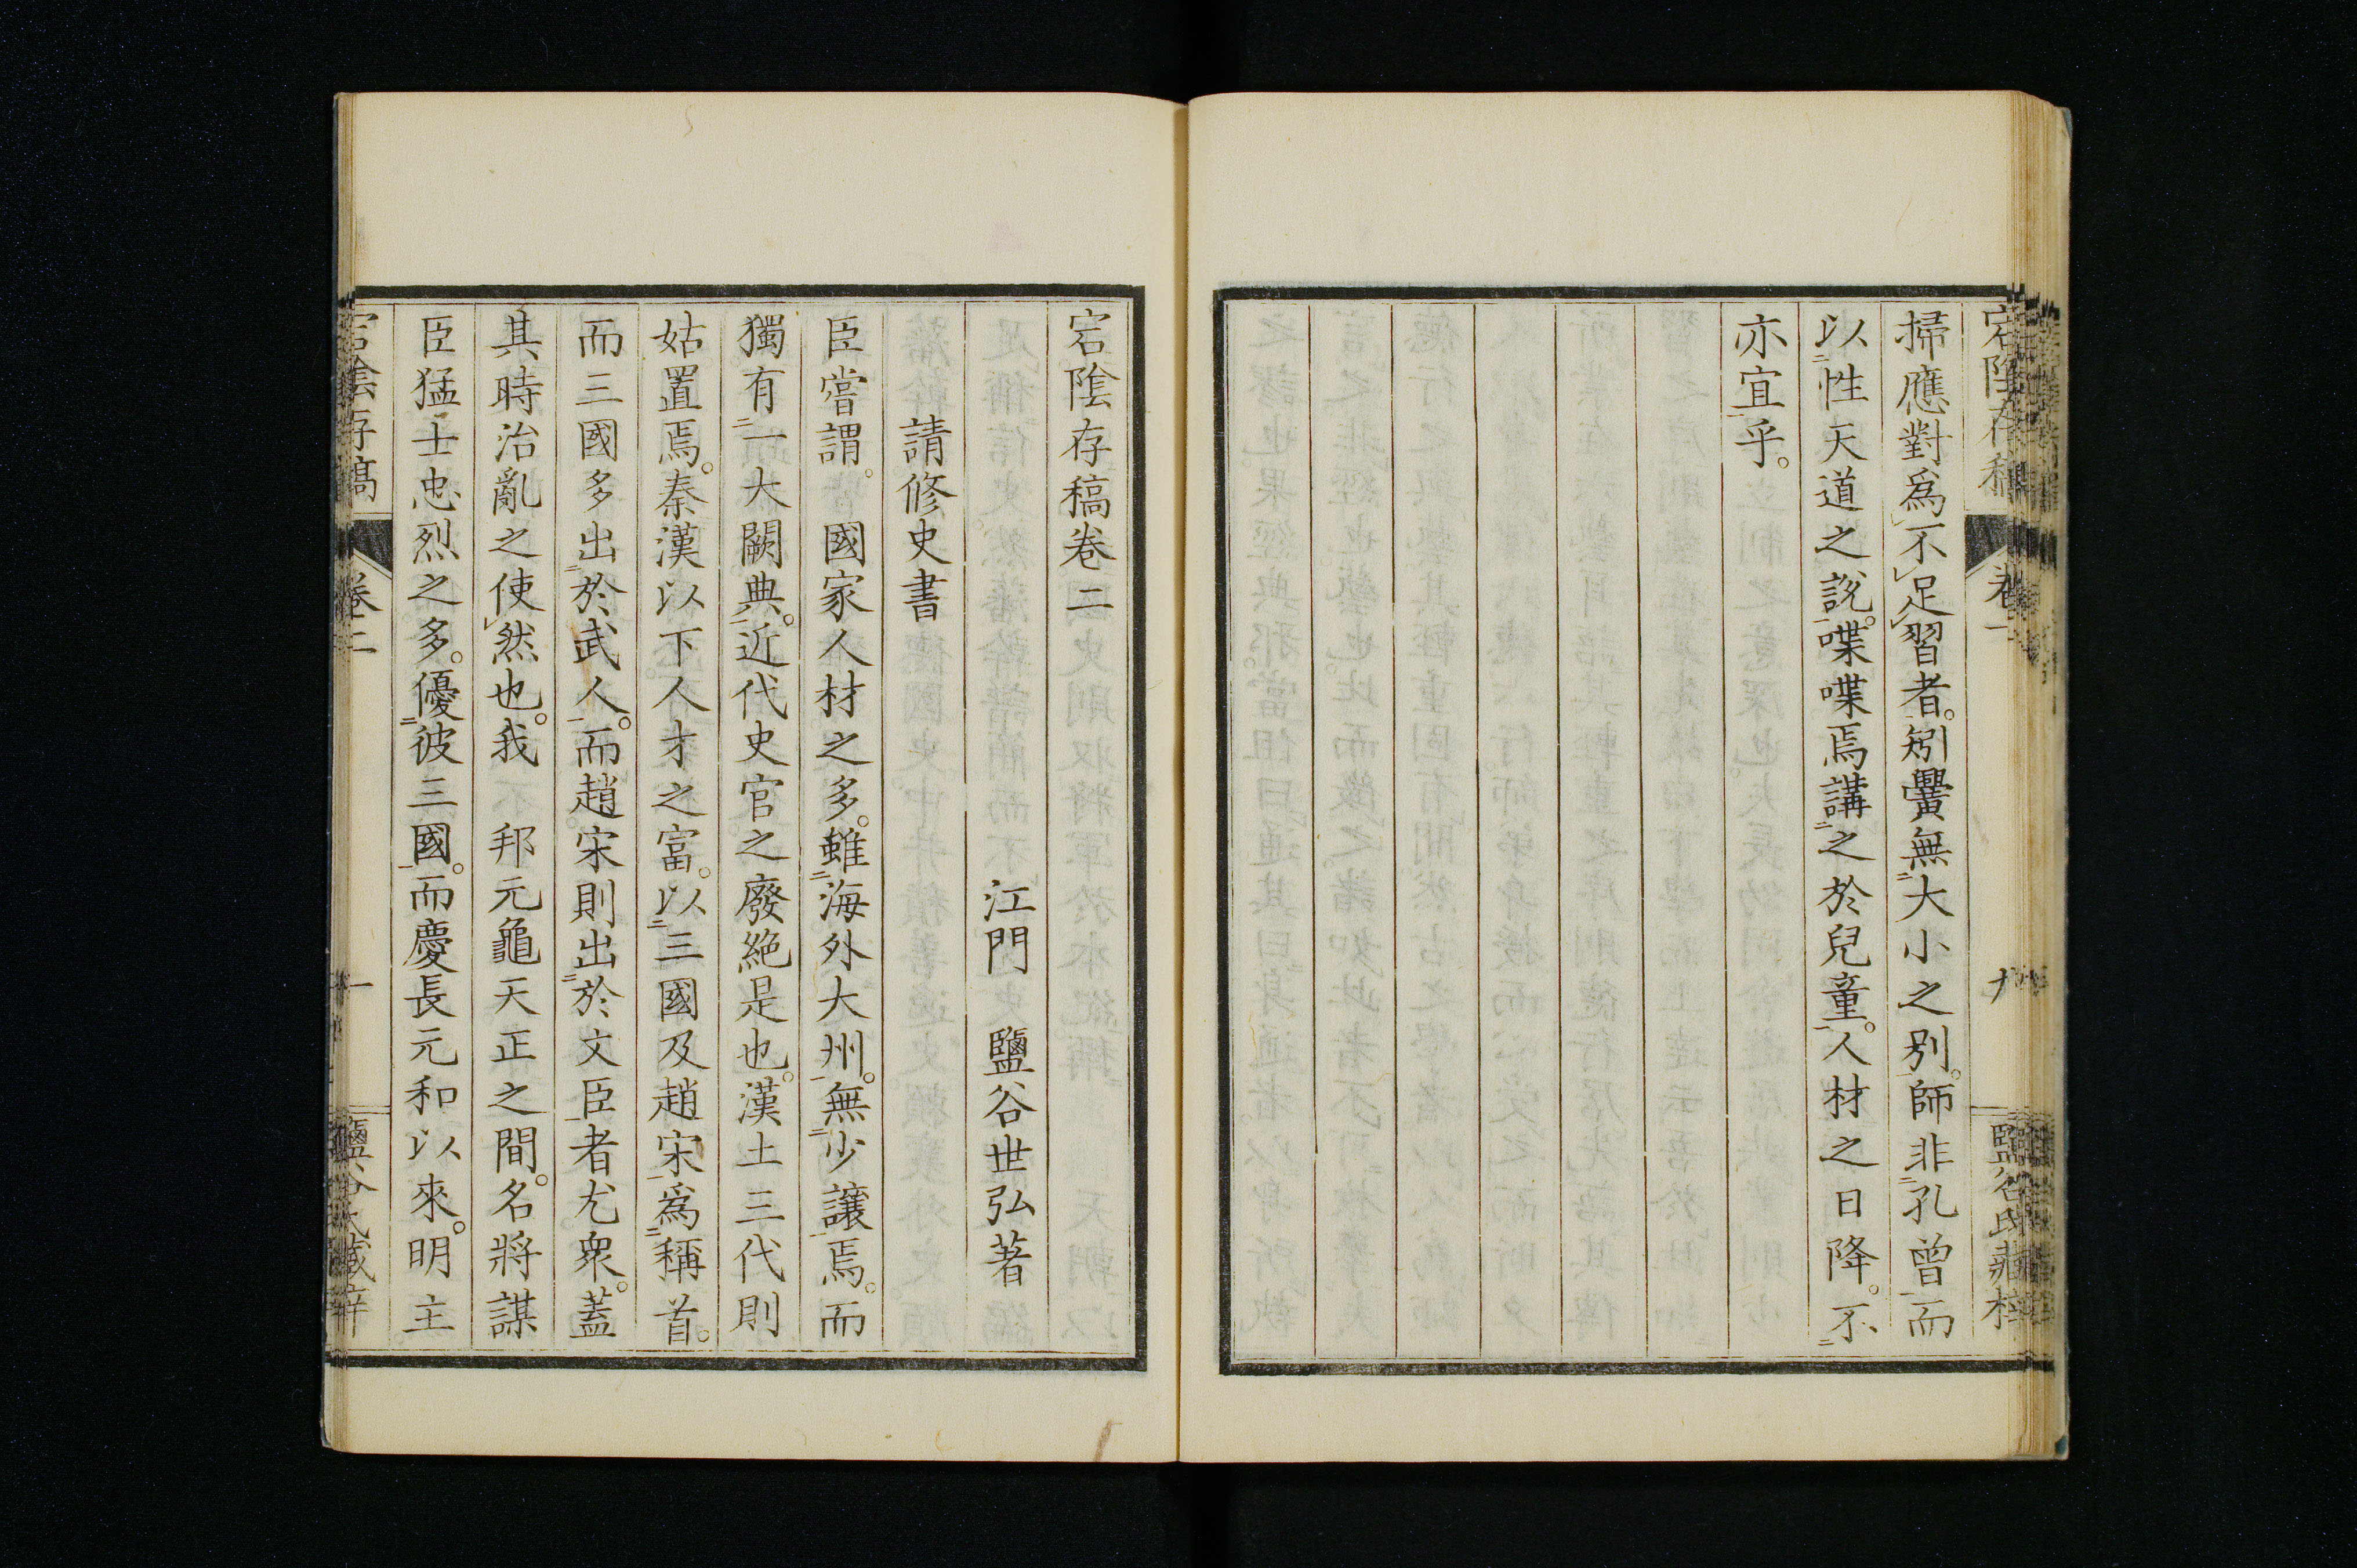 宕陰存稿
卷一
鹽谷氏藏梓
掃應對爲不足習者。矧黌無大小之別。師非孔曾而
以性天道之說。喋喋焉講之於兒童。人材之日降。不
亦宜乎。
宕陰存稿卷二
江門 鹽谷世弘著
請修史書
臣嘗謂。 國家人材之多。雖海外大州。無少讓焉。而
獨有一大闕典。近代史官之廢絶是也。漢土三代則
姑置焉。秦漢以下人才之富。以三國及趙宋爲稱首。
而三國多出於武人。而趙宋則出於文臣者尤衆。蓋
其時治亂之使然也。我 邦元龜天正之間。名將謀
臣猛士忠烈之多。優彼三國。而慶長元和以來。明主
宕陰存稿
卷二
一
鹽谷氏藏梓